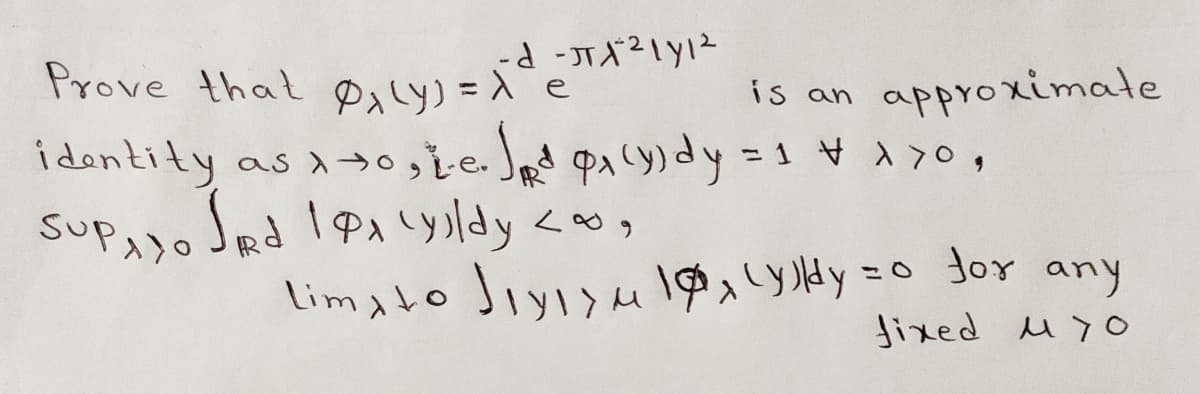 Prove that φ_λ(y) = λ^{-d} e^{-πλ^{-2}|y|^2} is an approximate
identity as λ→0, i.e. ∫_{ℝ^d} φ_λ(y) dy = 1 ∀ λ>0,
sup_{λ>0} ∫_{ℝ^d} |φ_λ(y)| dy < ∞,
lim_{λ↓0} ∫_{|y|>μ} |φ_λ(y)| dy = 0 for any
fixed μ>0